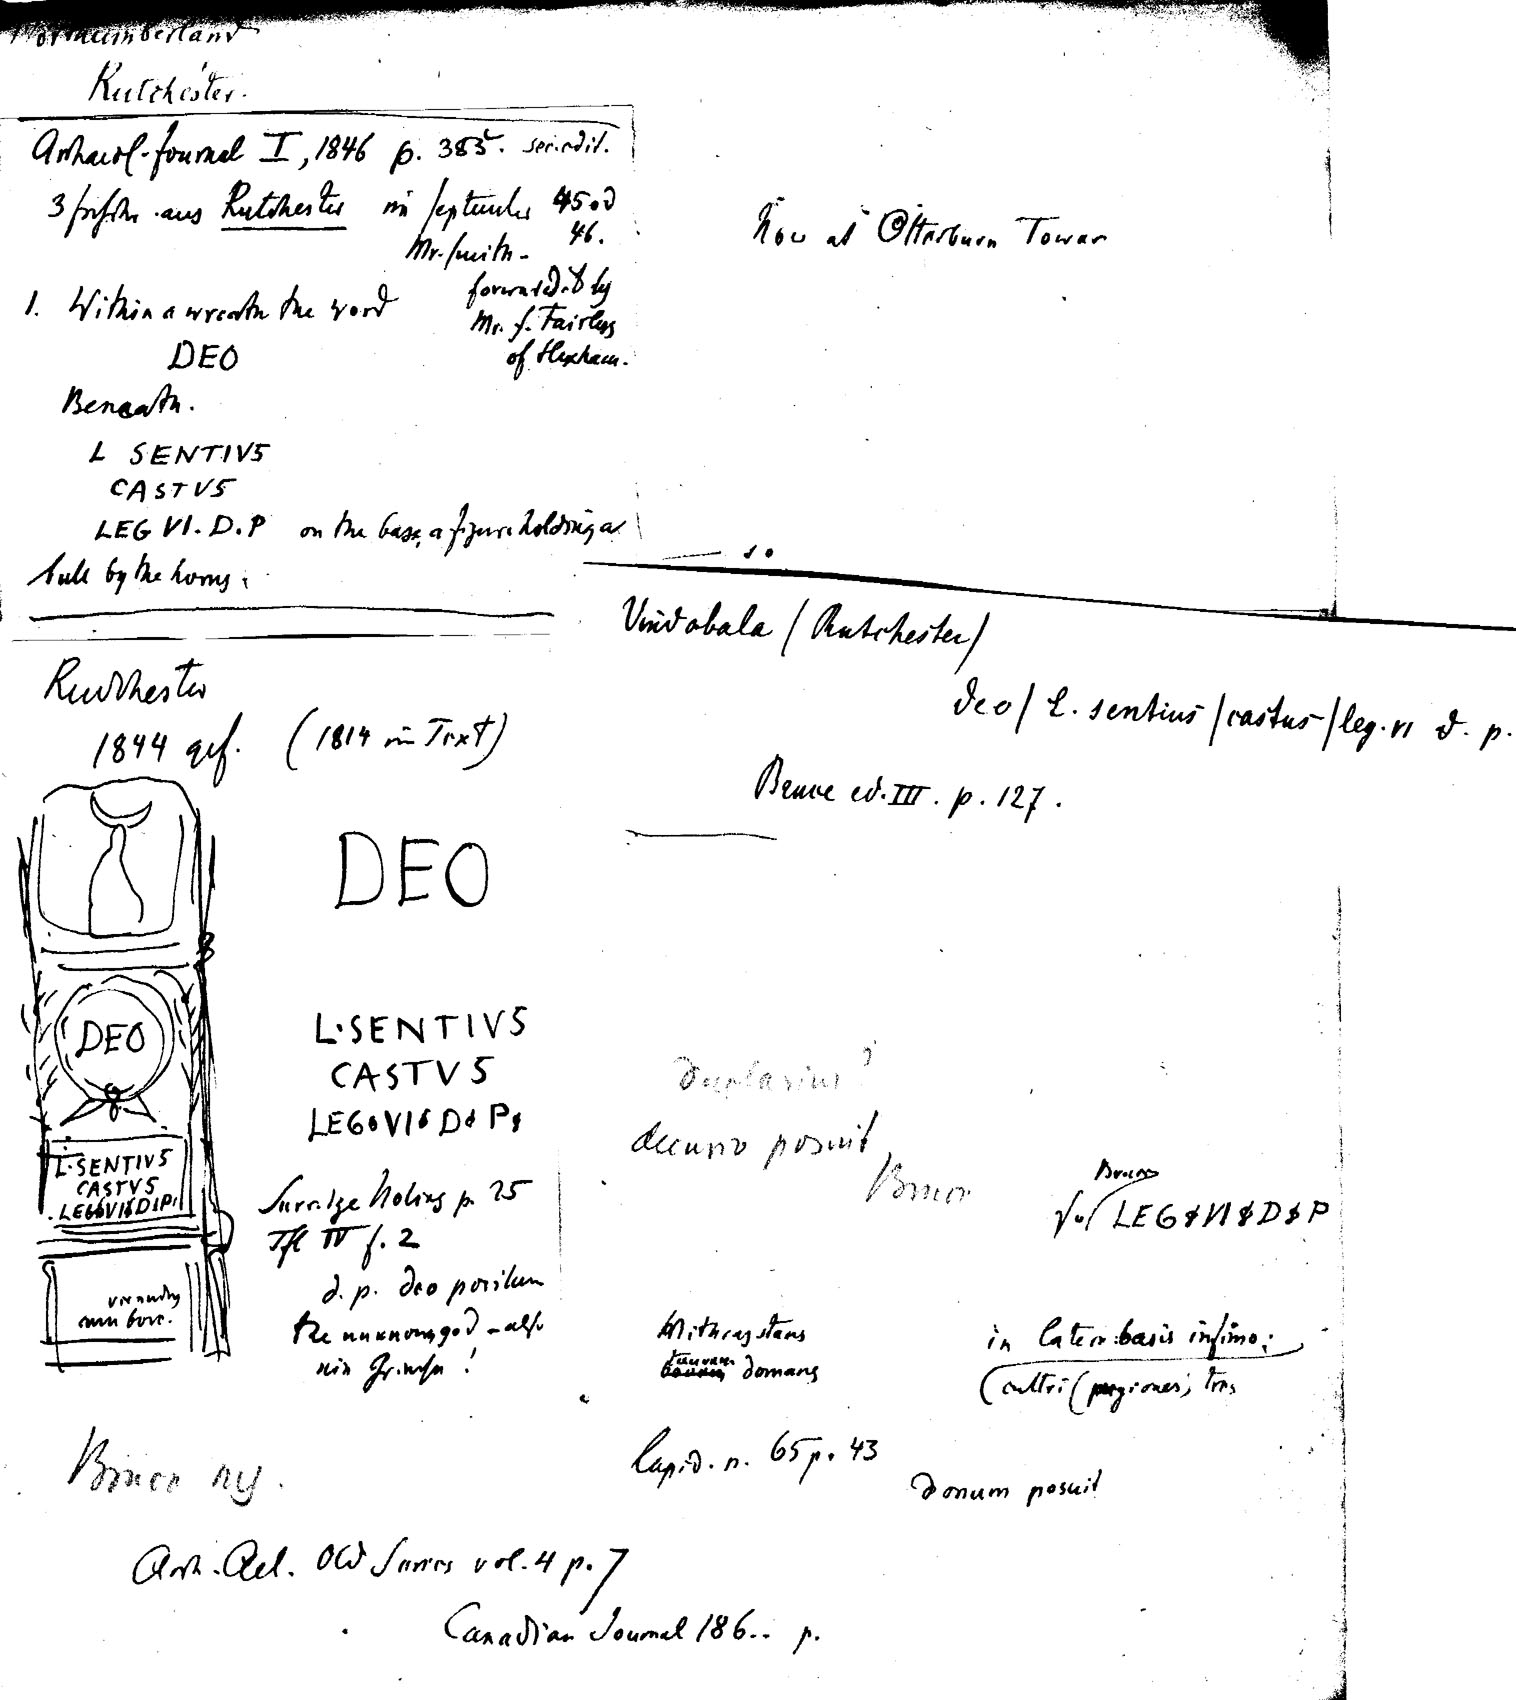 Northumberland
Rutchester.
Archaeol. Journal I, 1846 p. 385. sec. edit.
3 aus Rutchester im September 45 od
46.
Mr. Smith -
forwarded by
Mr. J. Fairless
of Hexham.
1. Within a wreath the word
DEO
Beneath.
L SENTIVS
CASTVS
LEG VI. D. P on the base, a figure holding a
bull by the horns.
Now at Otterburn Tower
Vindobala (Rutchester)
deo / L. sentius / castus / leg. vi d. p.
Bruce ed. III. p. 127.
Rudchester
1844 gef. (1814 im Text)
DEO
L·SENTIVS
CASTVS
LEG VI D P
DEO
L·SENTIVS
CASTVS
LEG VI D P
cum bove.
duplarius?
decurio posuit
Bruce
Bruce
LEG VI D P
p. 25
Tfl IV f. 2
d. p. deo positum
the unknown god - also
ein !
Mithras stans
taurum domans
in latere basis infimo:
(cultri (pugiones) tres
Bruce
Lapid. n. 65 p. 43
donum posuit
Arch. Ael. Old Series vol. 4 p. 7
Canadian Journal 186.. p.